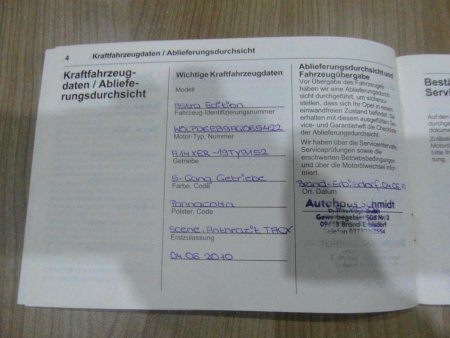 4 Kraftfahrzeugdaten / Ablieferungsdurchsicht
Kraftfahrzeug-
daten / Abliefe-
rungsdurchsicht
Wichtige Kraftfahrzeugdaten
Modell
Astra Edition
Fahrzeug-Identifizierungsnummer
Motor-Typ, Nummer
Getriebe
5-Gang Getriebe
Farbe, Code
Pannacotta
Polster, Code
Scene, Anthrazit
Erstzulassung
04.06.2010
Ablieferungsdurchsicht und
Fahrzeugübergabe
Vor Übergabe des Fahrzeuges
haben wir eine Ablieferungs-
durchsicht durchgeführt, um sicherzu-
stellen, dass sich Ihr Opel in einem
einwandfreien Zustand befindet. Sie
erhalten mit diesem ausgefüllten
vice- und Garantieheft die Checkliste
der Ablieferungsdurchsicht.
Wir haben über die Serviceintervalle,
Serviceprüfungen sowie die
erschwerten Betriebsbedingungen
und über die Motorölwechsel infor-
miert.
Brand-Erbisdorf, 04.06.10
Ort, Datum
Autohaus Schmidt
Gewerbegebiet Süd Nr. 2
09618 Brand-Erbisdorf
Telefon
Bestä
Servi
Auf den
durchge
dokume